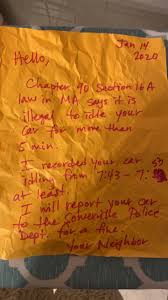 Jan 14
2020
Hello,
Chapter 90 Section 16A
law in MA says it is
illegal to idle your
car for more than
5 min.
I recorded your car
idling from 7:43 - 7:
at least.
I will report your car
to the Somerville Police
Dept. for a fine.
Your Neighbor